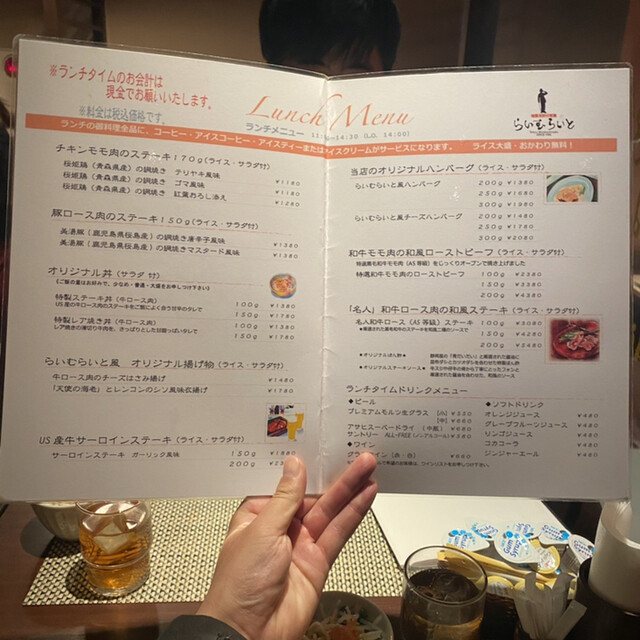 ※ランチタイムのお会計は
現金でお願いいたします。
※料金は税込価格です。
Lunch Menu
ランチメニュー 11:30~14:30 (L.O. 14:00)
らいむらいと
ランチの御料理全品に、コーヒー・アイスコーヒー・アイスティーまたはアイスクリームがサービスになります。 ライス大盛・おかわり無料!
チキンモモ肉のステーキ170g(ライス・サラダ付)
桜姫鶏(青森県産)の鍋焼き テリヤキ風味 ¥1180
桜姫鶏(青森県産)の鍋焼き ゴマ風味 ¥1180
桜姫鶏(青森県産)の鍋焼き 紅葉おろし添え ¥1280
豚ロース肉のステーキ150g(ライス・サラダ付)
美湯豚(鹿児島県桜島産)の鍋焼き唐辛子風味 ¥1380
美湯豚(鹿児島県桜島産)の鍋焼きマスタード風味 ¥1380
オリジナル丼(サラダ 付)
(ご飯の量はお好みで、少なめ・普通・大盛をお申しつけ下さい)
特製ステーキ丼(牛ロース肉) 100g ¥1380
US産の牛ロース肉のステーキをご飯によく合う甘辛のタレで 150g ¥1780
特製レア焼き丼(牛ロース肉) 100g ¥1380
レア焼きの薄切り牛肉を、さっぱりとした甘酸っぱいタレで 150g ¥1780
らいむらいと風 オリジナル揚げ物(ライス・サラダ付)
牛ロース肉のチーズはさみ揚げ ¥1480
「天使の海老」とレンコンのシソ風味衣揚げ ¥1780
US産牛サーロインステーキ(ライス・サラダ付)
サーロインステーキ ガーリック風味 150g ¥1880
200g
当店のオリジナルハンバーグ(ライス・サラダ付)
らいむらいと風ハンバーグ 200g ¥1380
250g ¥1680
300g ¥1980
らいむらいと風チーズハンバーグ 200g ¥1480
250g ¥1780
300g ¥2080
和牛モモ肉の和風ローストビーフ(ライス・サラダ付)
特選黒毛和牛モモ肉(A5等級)をじっくりオーブンで焼き上げました
特選和牛モモ肉のローストビーフ 100g ¥2380
150g ¥3380
200g ¥4380
「名人」和牛ロース肉の和風ステーキ(ライス・サラダ付)
名人和牛ロース(A5等級)ステーキ 100g ¥3080
150g ¥4280
200g ¥5480
・オリジナルぽん酢
・オリジナルステーキソース
ランチタイムドリンクメニュー
◆ビール
プレミアムモルツ生グラス [小] ¥330
[中] ¥660
アサヒスーパードライ (中瓶) ¥660
サントリー ALL-FREE(ノンアルコール) ¥380
◆ワイン
グラスワイン(赤・白) ¥660
◆ソフトドリンク
オレンジジュース ¥480
グレープフルーツジュース ¥480
リンゴジュース ¥480
コカコーラ ¥480
ジンジャーエール ¥480